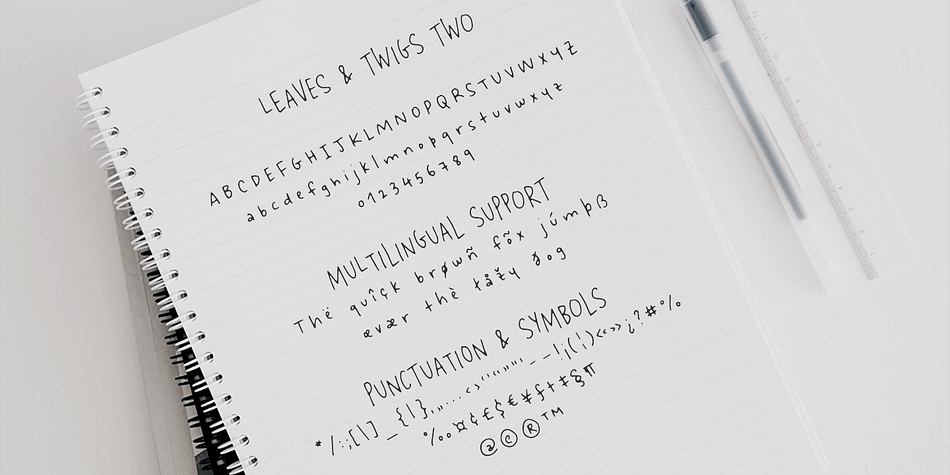 LEAVES & TWIGS TWO
ABCDEFGHIJKLMNOPQRSTUVWXYZ
abcdefghijklmnopqrstuvwxyz
0123456789
MULTILINGUAL SUPPORT
Thë quîçk brøwñ fõx júmþß
œvær thè łåžy ðog
PUNCTUATION & SYMBOLS
*/:;[\]_{|},„...‹›''""'"--!¡(¦)«»¿?#%
‰¤¢£$€¥ƒ+‡§¶
@©®™